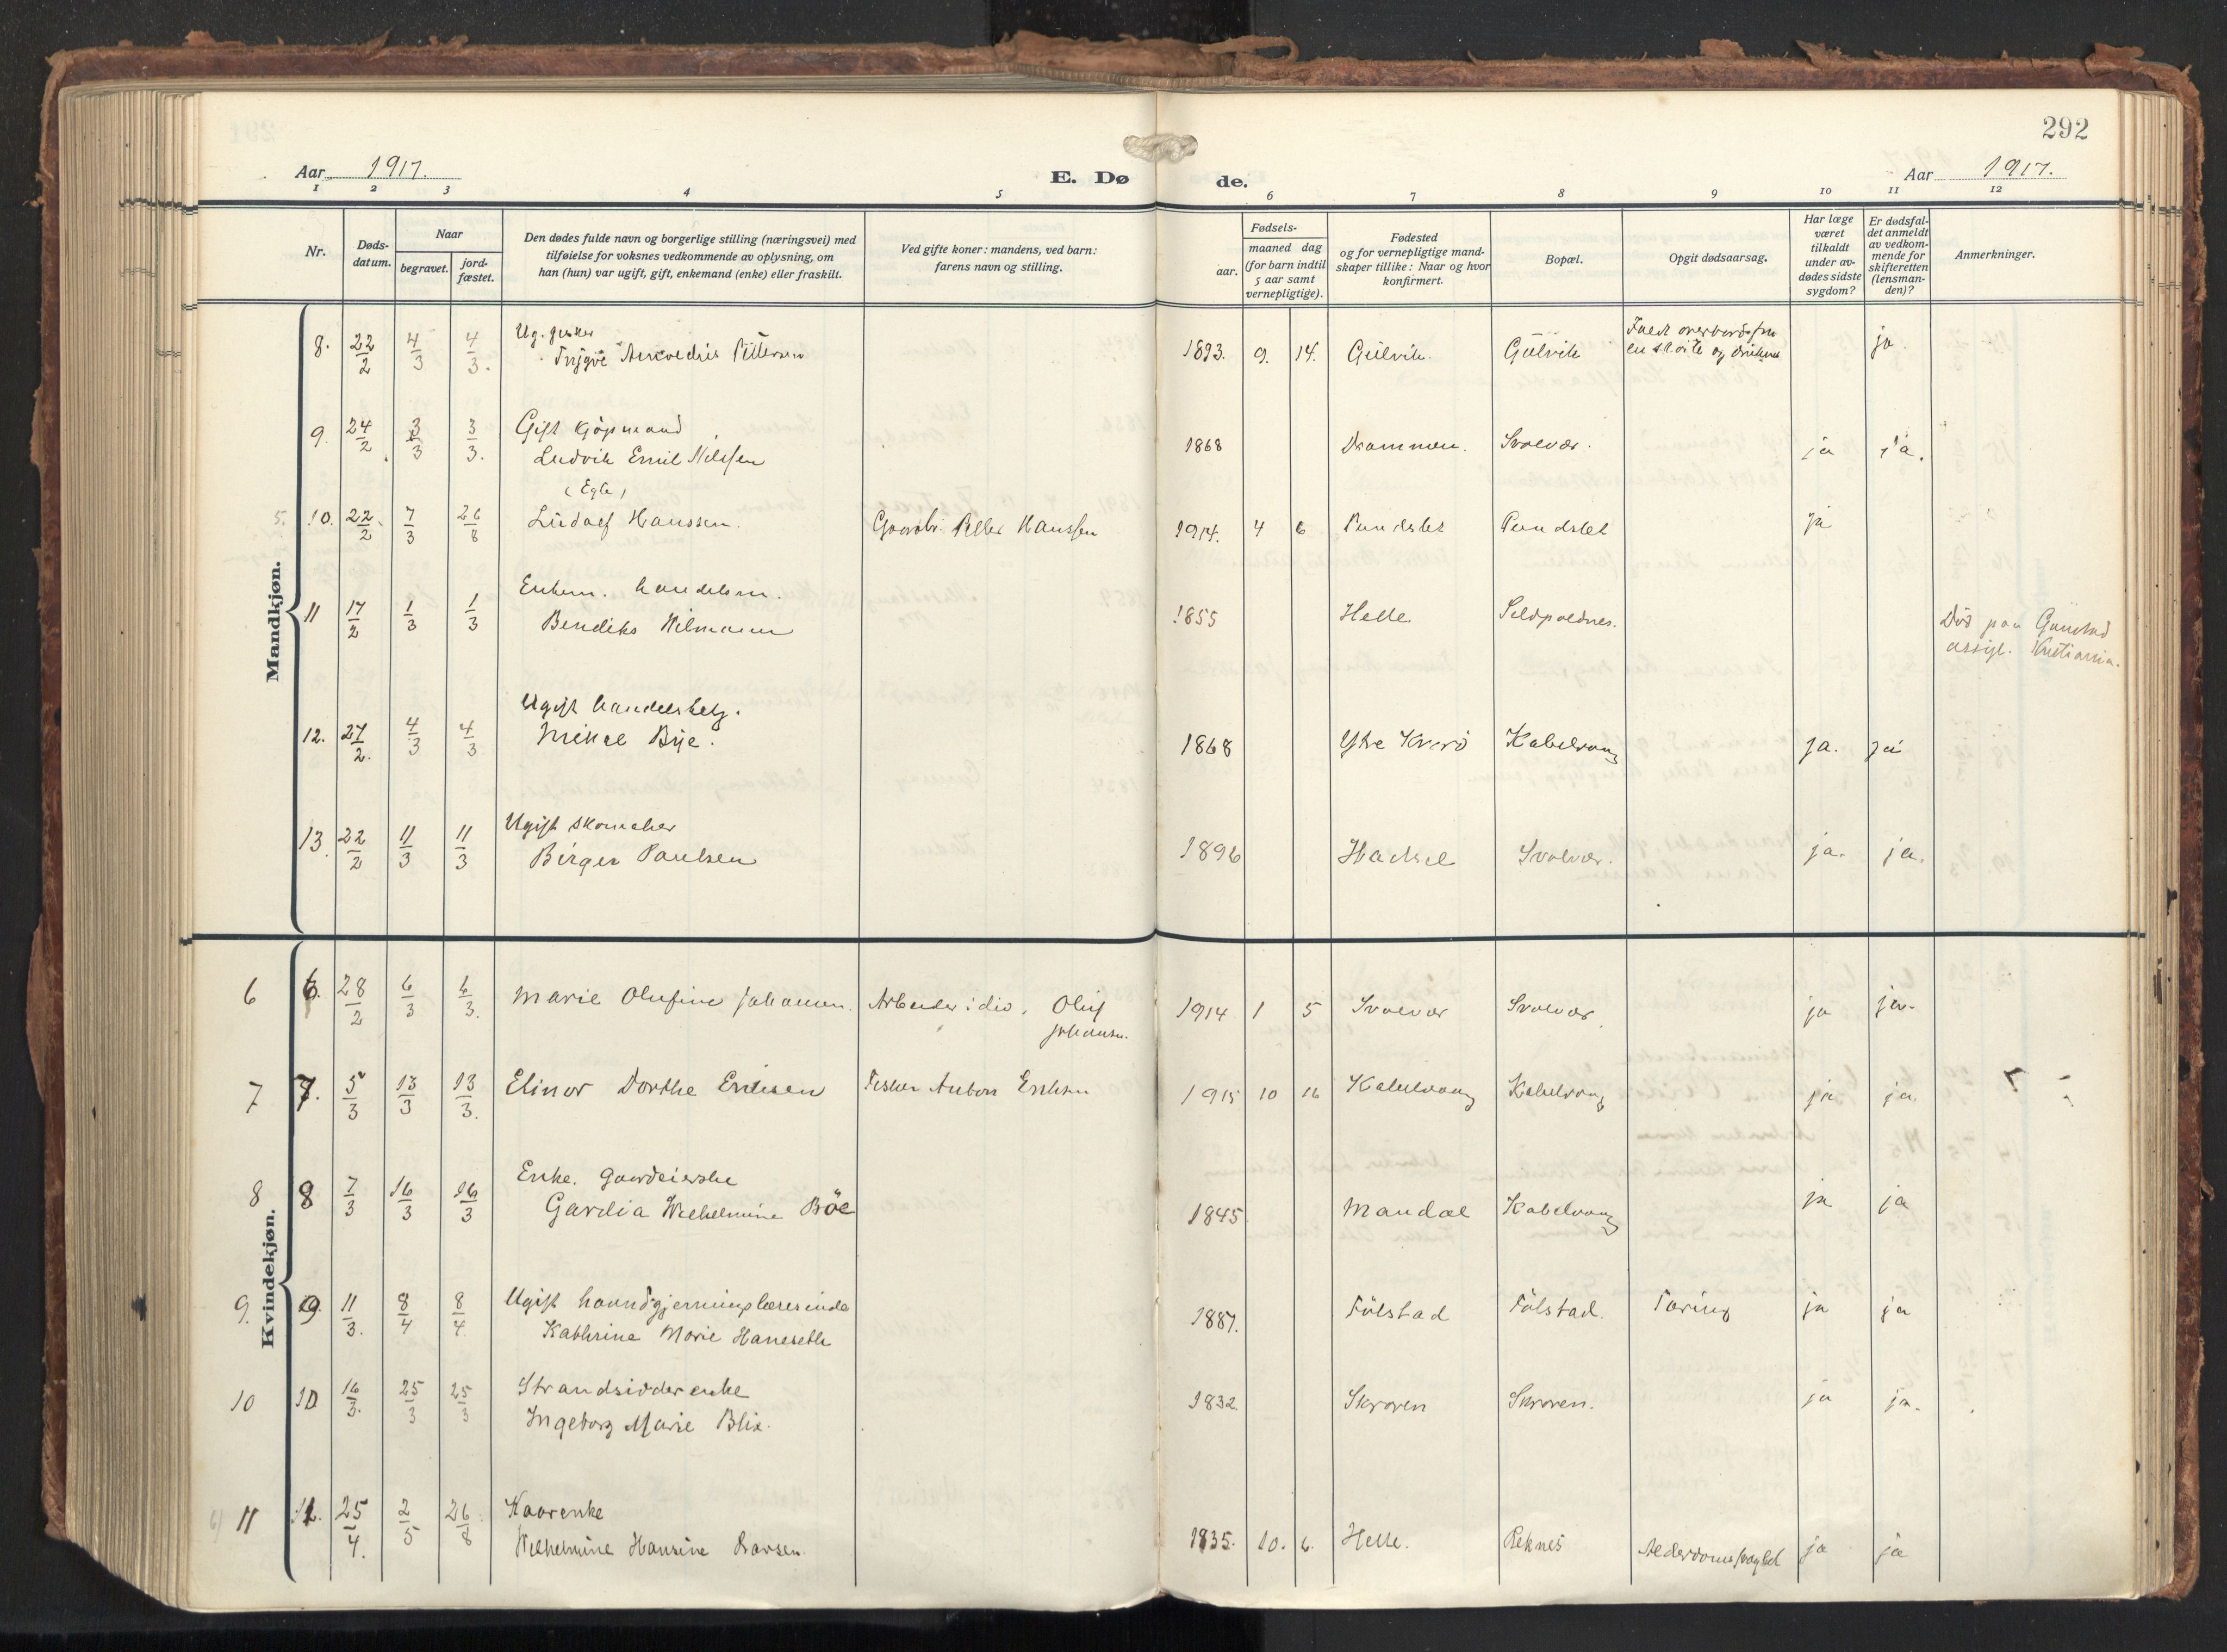 292
Aar 1917.
E. Dø de.
Aar 1917.
1 2 3 4 5 6 7 8 9 10 11 12
Nr.
Døds-
datum.
Naar
begravet.
jord-
fæstet.
Den dødes fulde navn og borgerlige stilling (næringsvei) med
tilføielse for voksnes vedkommende av oplysning, om
han (hun) var ugift, gift, enkemand (enke) eller fraskilt.
Ved gifte koner: mandens, ved barn:
farens navn og stilling.
Fødsels-
aar.
maaned dag
(for barn indtil
5 aar samt
vernepligtige).
Fødested
og for vernepligtige mand-
skaper tillike: Naar og hvor
konfirmert.
Bopæl.
Opgit dødsaarsag.
Har læge
været
tilkaldt
under av-
dødes sidste
sygdom?
Er dødsfal-
det anmeldt
av vedkom-
mende for
skifteretten
(lensman-
den)?
Anmerkninger.
Mandkjøn.
Ug. fisker
8. 22/2 4/3 4/3. Trygve Pettersen 1893. 9. 14. Gulvik. Gulvik ja.
Gift Kjøpmand
9. 24/2 3/3 3/3. Ludvik Emil Nilsen 1868 Drammen. Svolvær. ja ja.
(Egte)
5. 10. 22/2 7/3 26/8 Ludolf Hanssen. Gaardbr. Petter Hanssen 1914. 4 6 Pundslet Pundslet ja
Enkem. handelsm.
11 17/2 1/3 1/3 Bendiks Wilmann 1855 Helle Død paa Gaustad
asyl. Kristiania.
Ugift handelsbetj.
12. 27/2. 4/3 4/3 Mikal Bye. 1868 Kabelvaag ja. ja
Ugift skomaker
13. 22/2 11/3 11/3 Birger Paulsen 1896 Hadsel Svolvær. ja. ja.
Kvindekjøn.
6 6. 28/2 6/3 6/3. Marie Olufine Johansen. Arbeider i div. Oluf
Johansen. 1914 1 5 Svolvær Svolvær. ja ja.
7 7. 5/3 13/3 13/3. Elinor Dorthe Eriksen Fisker Anton Eriksen 1915 10 16 Kabelvaag Kabelvaag ja ja
Enke. Gaardeierske
8 8 7/3 16/3 16/3 Gardia Wilhelmine Böe 1845 Mandal Kabelvaag ja ja
Ugift haandgjerningslærerinde
9. 9. 11/3. 8/4 8/4. Kathrine Marie Haneseth 1887. Fölstad Fölstad. Tæring ja ja
Strandsidderenke
10 10 16/3. 25/3 25/3 Ingeborg Marie Blix. 1832 Skroven Skroven. ja ja.
Kaarenke
11 11. 25/4. 2/5 26/8 Wilhelmine Hansine Larsen 1835. 10. 6. Helle. Reknes Alderdomssvaghet ja ja